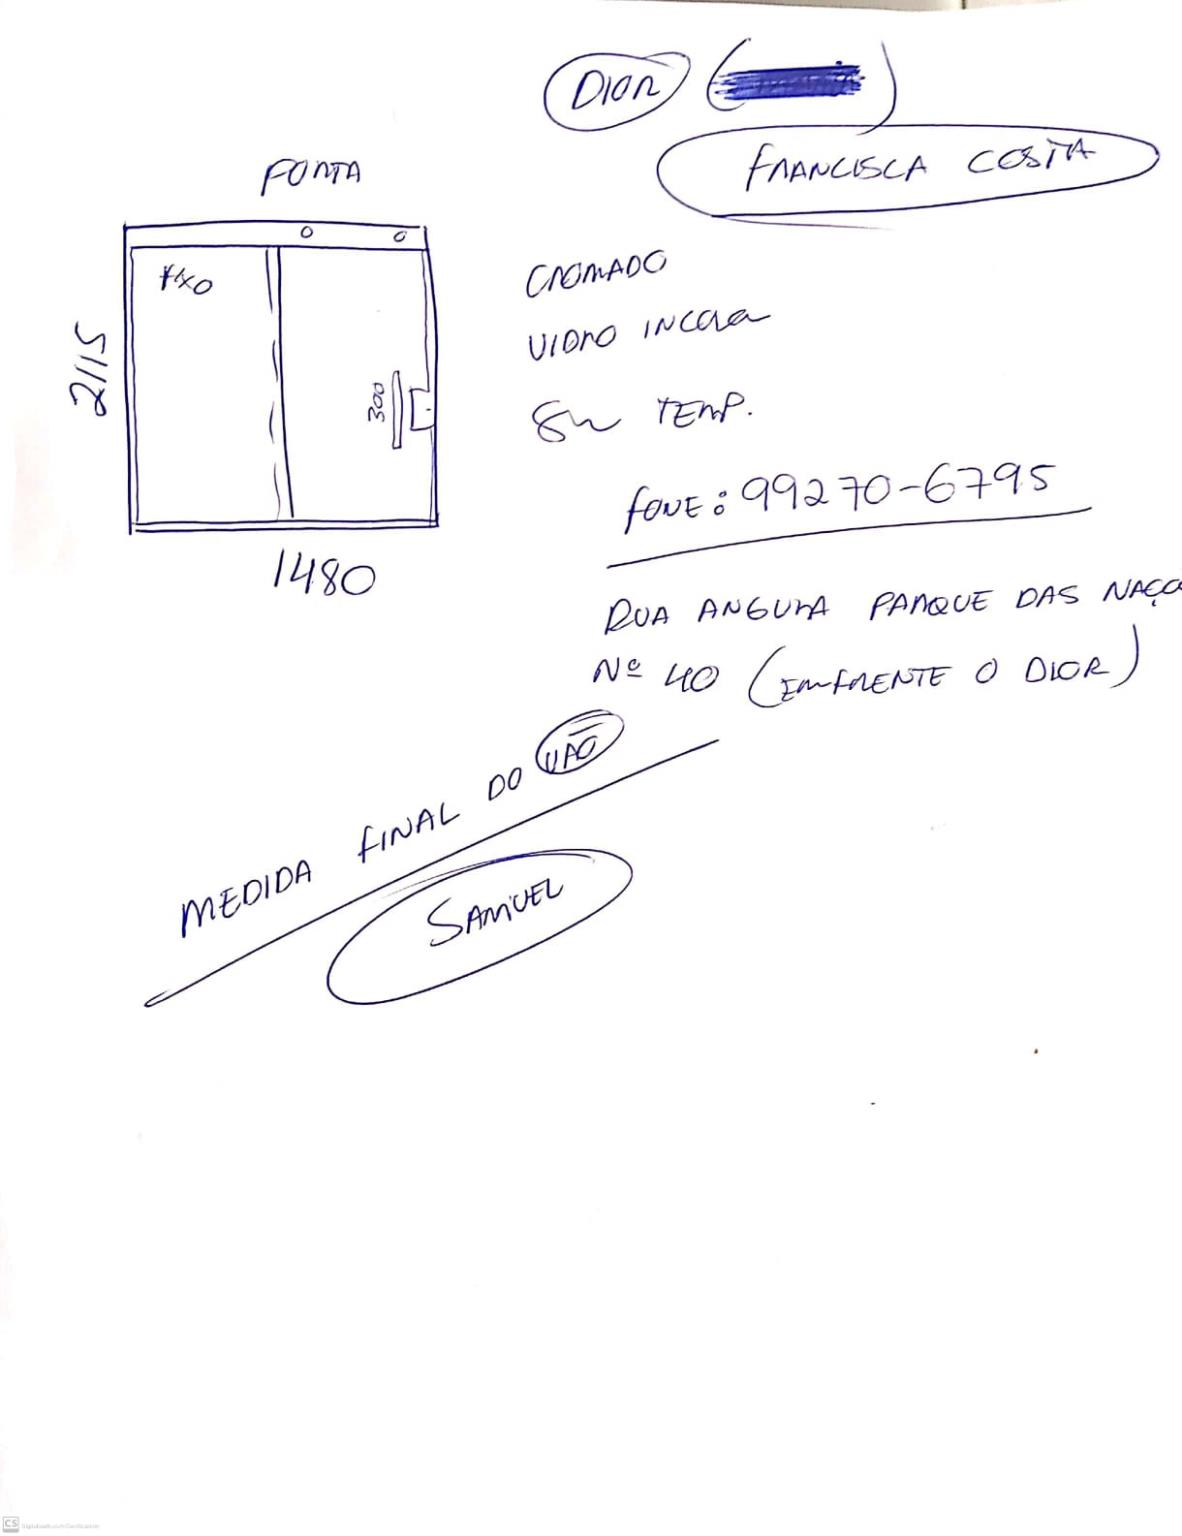 DIOR
FRANCISCA COSTA
PORTA
FIXO
2115
300
1480
CROMADO
VIDRO INCOLOR
8m TEMP.
FONE: 99270-6795
RUA ANGULA PARQUE DAS NAÇO
Nº 40 (EMFRENTE O DIOR)
MEDIDA FINAL DO VÃO
SAMUEL
CS